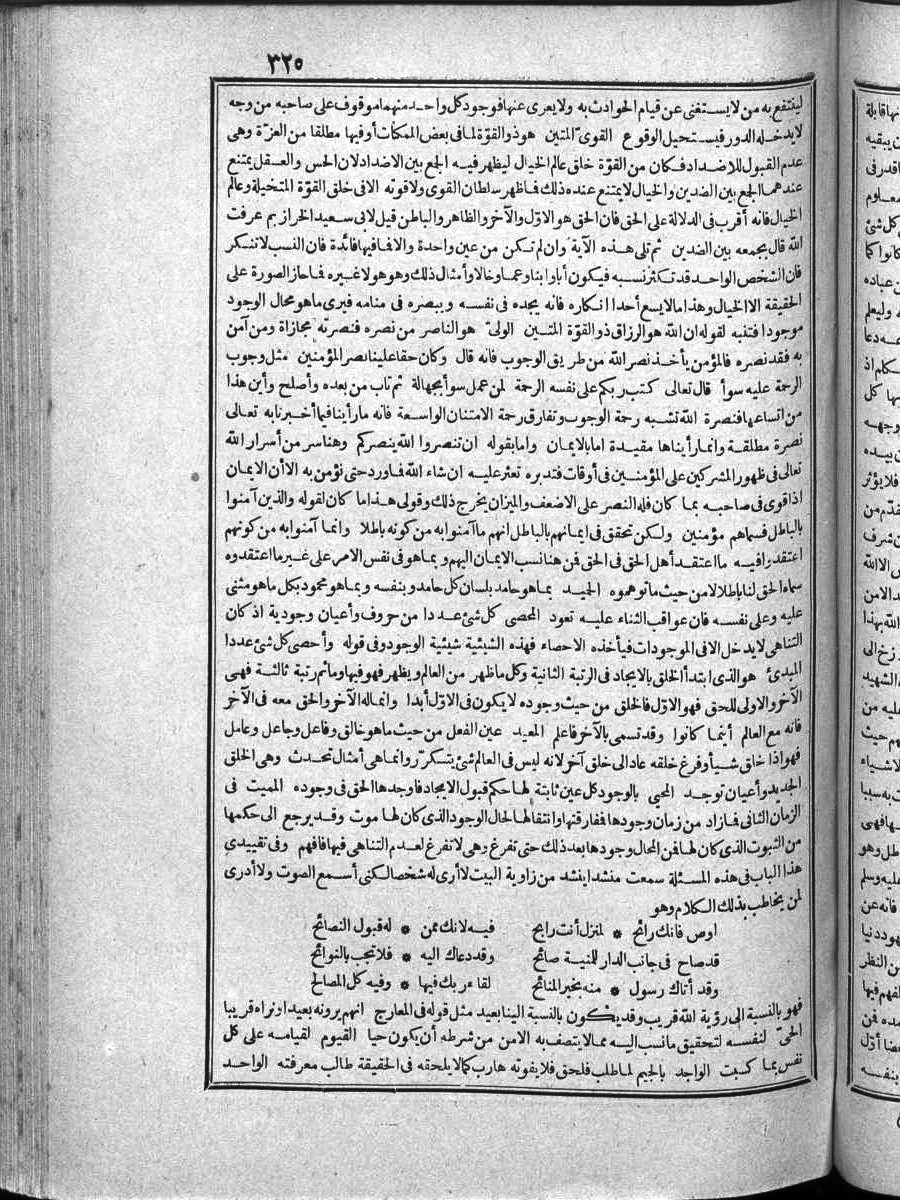 ٣٢٥
لينتفع به من لا يستغنى عن قيام الحوادث به ولا يعرى عنها فوجود كل واحد منهما موقوف على صاحبه من وجه
لا يدخله الدور فيستحيل الوقوع القوى المتين هو ذو القوة لما فى بعض الممكنات أو فيها مطلقا من العزة وهى
عدم القبول للاضداد فكان من القوة خلق عالم الخيال ليظهر فيه الجمع بين الاضداد لان الحس والعقل يمتنع
عندهما الجمع بين الضدين والخيال لا يمتنع عنده ذلك فاظهر سلطان القوى ولا قوته الا فى خلق القوة المتخيلة وعالم
الخيال فانه أقرب فى الدلالة على الحق فان الحق هو الاول والآخر والظاهر والباطن قيل لابى سعيد الخراز بم عرفت
الله قال بجمعه بين الضدين ثم تلى هذه الآية وان لم تكن من عين واحدة والا فافيها فائدة فان النسب لا تنكر
فان الشخص الواحد قد تكثر نسبه فيكون أبا وابنا وعما وخالا وأمثال ذلك وهو هو لا غيره فاحاز الصورة على
الحقيقة الا الخيال وهذا ما لا يسع أحدا انكاره فانه يجده فى نفسه ويبصره فى منامه فيرى ما هو محال الوجود
موجودا فتنبه لقوله ان الله هو الرزاق ذو القوة المتين الولى هو الناصر من نصره فنصرته مجازاة ومن آمن
به فقد نصره فالمؤمن يأخذ نصر الله من طريق الوجوب فانه قال وكان حقا علينا نصر المؤمنين مثل وجوب
الرحمة عليه سوأ قال تعالى كتب ربكم على نفسه الرحمة لمن عمل سوأ بجهالة ثم تاب من بعده وأصلح وأين هذا
من اتساعها فنصرة الله تشبه رحمة الوجوب وتفارق رحمة الامتنان الواسعة فانه ما رأينا فيما أخبرنا به تعالى
نصرة مطلقة وانما رأيناها مقيدة اما بالايمان واما بقوله ان تنصروا الله ينصركم وهنا سر من أسرار الله
تعالى فى ظهور المشركين على المؤمنين فى أوقات فتدبره تعثر عليه ان شاء الله فاورد حتى نؤمن به الا أن الايمان
اذا قوى فى صاحبه بما كان فله النصر على الاضعف والميزان يخرج ذلك وقولى هذا ما كان لقوله والذين آمنوا
بالباطل فسماهم مؤمنين ولكن تحقق فى ايمانهم بالباطل انهم ما آمنوا به من كونه باطلا وانما آمنوا به من كونهم
اعتقدوا فيه ما اعتقد أهل الحق فى الحق فمن هنا نسب الايمان اليهم وبما هو فى نفس الامر على غير ما اعتقدوه
سماه الحق لنا باطلا لا من حيث ما توهموه الحميد بما هو حامد بلسان كل حامد وبنفسه وبما هو محمود بكل ما هو مثنى
عليه وعلى نفسه فان عواقب الثناء عليه تعود المحصى كل شئ عددا من حروف وأعيان وجودية اذ كان
التناهى لا يدخل الا فى الموجودات فيأخذه الاحصاء فهذه الشيئية شيئية الوجود فى قوله وأحصى كل شئ عددا
المبدئ هو الذى ابتدأ الخلق بالايجاد فى الرتبة الثانية وكل ما ظهر من العالم ويظهر فهو فيها وما ثم رتبة ثالثة فهى
الآخر والاولى للحق فهو الاول فالخلق من حيث وجوده لا يكون فى الاول أبدا وانما له الآخر والحق معه فى الآخر
فانه مع العالم أينما كانوا وقد تسمى بالآخر فاعلم المعيد عين الفعل من حيث ما هو خالق وفاعل وجاعل وعامل
فهو اذا خلق شيأ وفرغ خلقه عاد الى خلق آخر لانه ليس فى العالم شئ يتكرر وانما هى أمثال تحدث وهى الخلق
الجديد وأعيان توجد المحيى بالوجود كل عين ثابتة لها حكم قبول الايجاد فاوجدها الحق فى وجوده المميت فى
الزمان الثانى فما زاد من زمان وجودها ففارقتها وانتقالها لحال الوجود الذى كان لها موت وقد يرجع الى حكمها
من الثبوت الذى كان لها فمن المحال وجودها بعد ذلك حتى تفرغ وهى لا تفرغ لعدم التناهى فيها فافهم وفى تقييدى
هذا الباب فى هذه المسئلة سمعت منشدا ينشد من زاوية البيت لا أرى له شخصا لكنى أسمع الصوت ولا أدرى
لمن يخاطب بذلك الكلام وهو
اوص فانك رائح * لمنزل أنت رابح فيه لانك ممن * له قبول النصائح
قد صاح فى جانب الدار للمنية صائح وقد دعاك اليه * فلا تجب بالنوائح
وقد أتاك رسول * منه بخير المنائح لقاء ربك فيها * وفيه كل المصالح
فهو بالنسبة الى رؤية الله قريب وقد يكون بالنسبة الينا بعيد مثل قوله فى المعارج انهم يرونه بعيدا ونراه قريبا
الحى لنفسه لتحقيق ما نسب اليه مما لا يتصف به الا من من شرطه أن يكون حيا القيوم لقيامه على كل
نفس بما كسبت الواجد بالجيم لما طلب فلحق فلا يفوته هارب كما لا يلحقه فى الحقيقة طالب معرفته الواحد